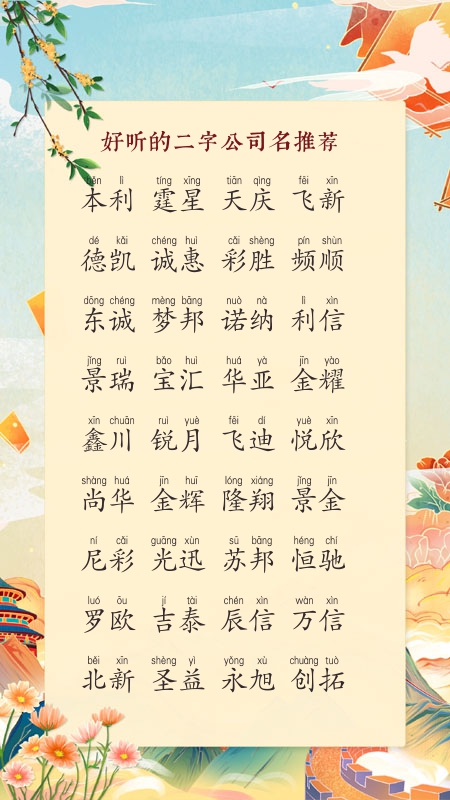 好听的二字公司名推荐
běn lì tíng xīng tiān qìng fēi xīn
本利 霆星 天庆 飞新
dé kǎi chéng huì cǎi shèng pín shùn
德凯 诚惠 彩胜 频顺
dōng chéng mèng bāng nuò nà lì xìn
东诚 梦邦 诺纳 利信
jǐng ruì bǎo huì huá yà jīn yào
景瑞 宝汇 华亚 金耀
xīn chuān ruì yuè fēi dí yuè xīn
鑫川 锐月 飞迪 悦欣
shàng huá jīn huī lóng xiáng jǐng jīn
尚华 金辉 隆翔 景金
ní cǎi guāng xùn sū bāng héng chí
尼彩 光迅 苏邦 恒驰
luó ōu jí tài chén xìn wàn xìn
罗欧 吉泰 辰信 万信
běi xīn shèng yì yǒng xù chuàng tuò
北新 圣益 永旭 创拓